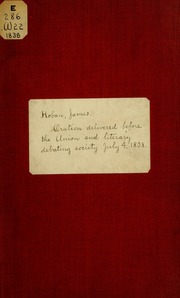 E
286
W22
1838
Hoban, James.
Oration delivered before
the Union and literary
debating society July 4, 1838.